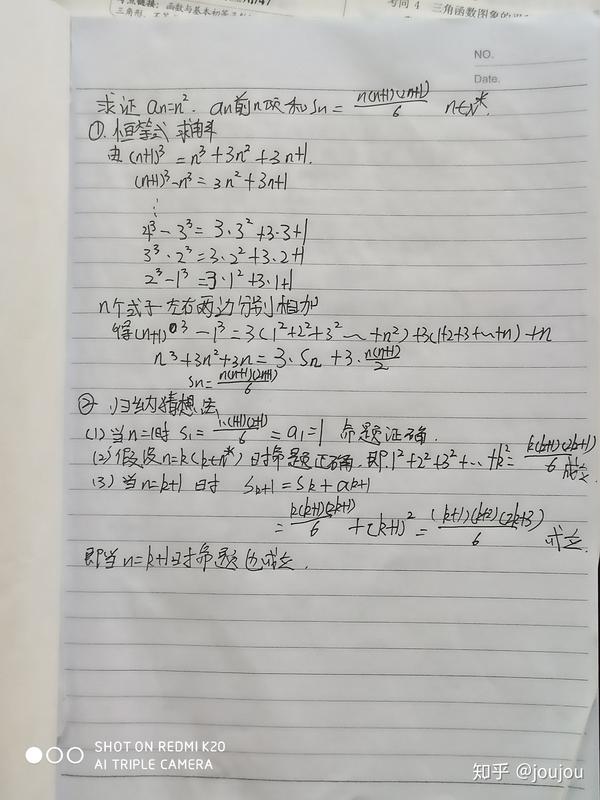 考点链接：函数与基本初等
考向 4 三角函数图象的
NO.
Date.
求证 an=n². an前n项和Sn = n(n+1)(2n+1)/6 n∈N*.
①恒等式求解
由 (n+1)³ = n³+3n²+3n+1.
(n+1)³-n³ = 3n²+3n+1
⋮
4³-3³ = 3·3²+3·3+1
3³-2³ = 3·2²+3·2+1
2³-1³ = 3·1²+3·1+1
n个式子左右两边分别相加
得(n+1)³-1³ = 3(1²+2²+3²…+n²)+3(1+2+3+…+n)+n
n³+3n²+3n = 3·Sn+3·n(n+1)/2
Sn = n(n+1)(2n+1)/6
② 归纳猜想法
(1)当n=1时 S1 = 1·(1+1)(2+1)/6 = a1=1 命题正确.
(2)假设n=k(k∈N*)时命题正确.即1²+2²+3²+…+k² = k(k+1)(2k+1)/6 成立
(3)当n=k+1时 Sk+1 = Sk+ak+1
= k(k+1)(2k+1)/6 +(k+1)² = (k+1)(k+2)(2k+3)/6 成立
即当n=k+1时命题也成立.
SHOT ON REDMI K20
AI TRIPLE CAMERA
知乎 @joujou